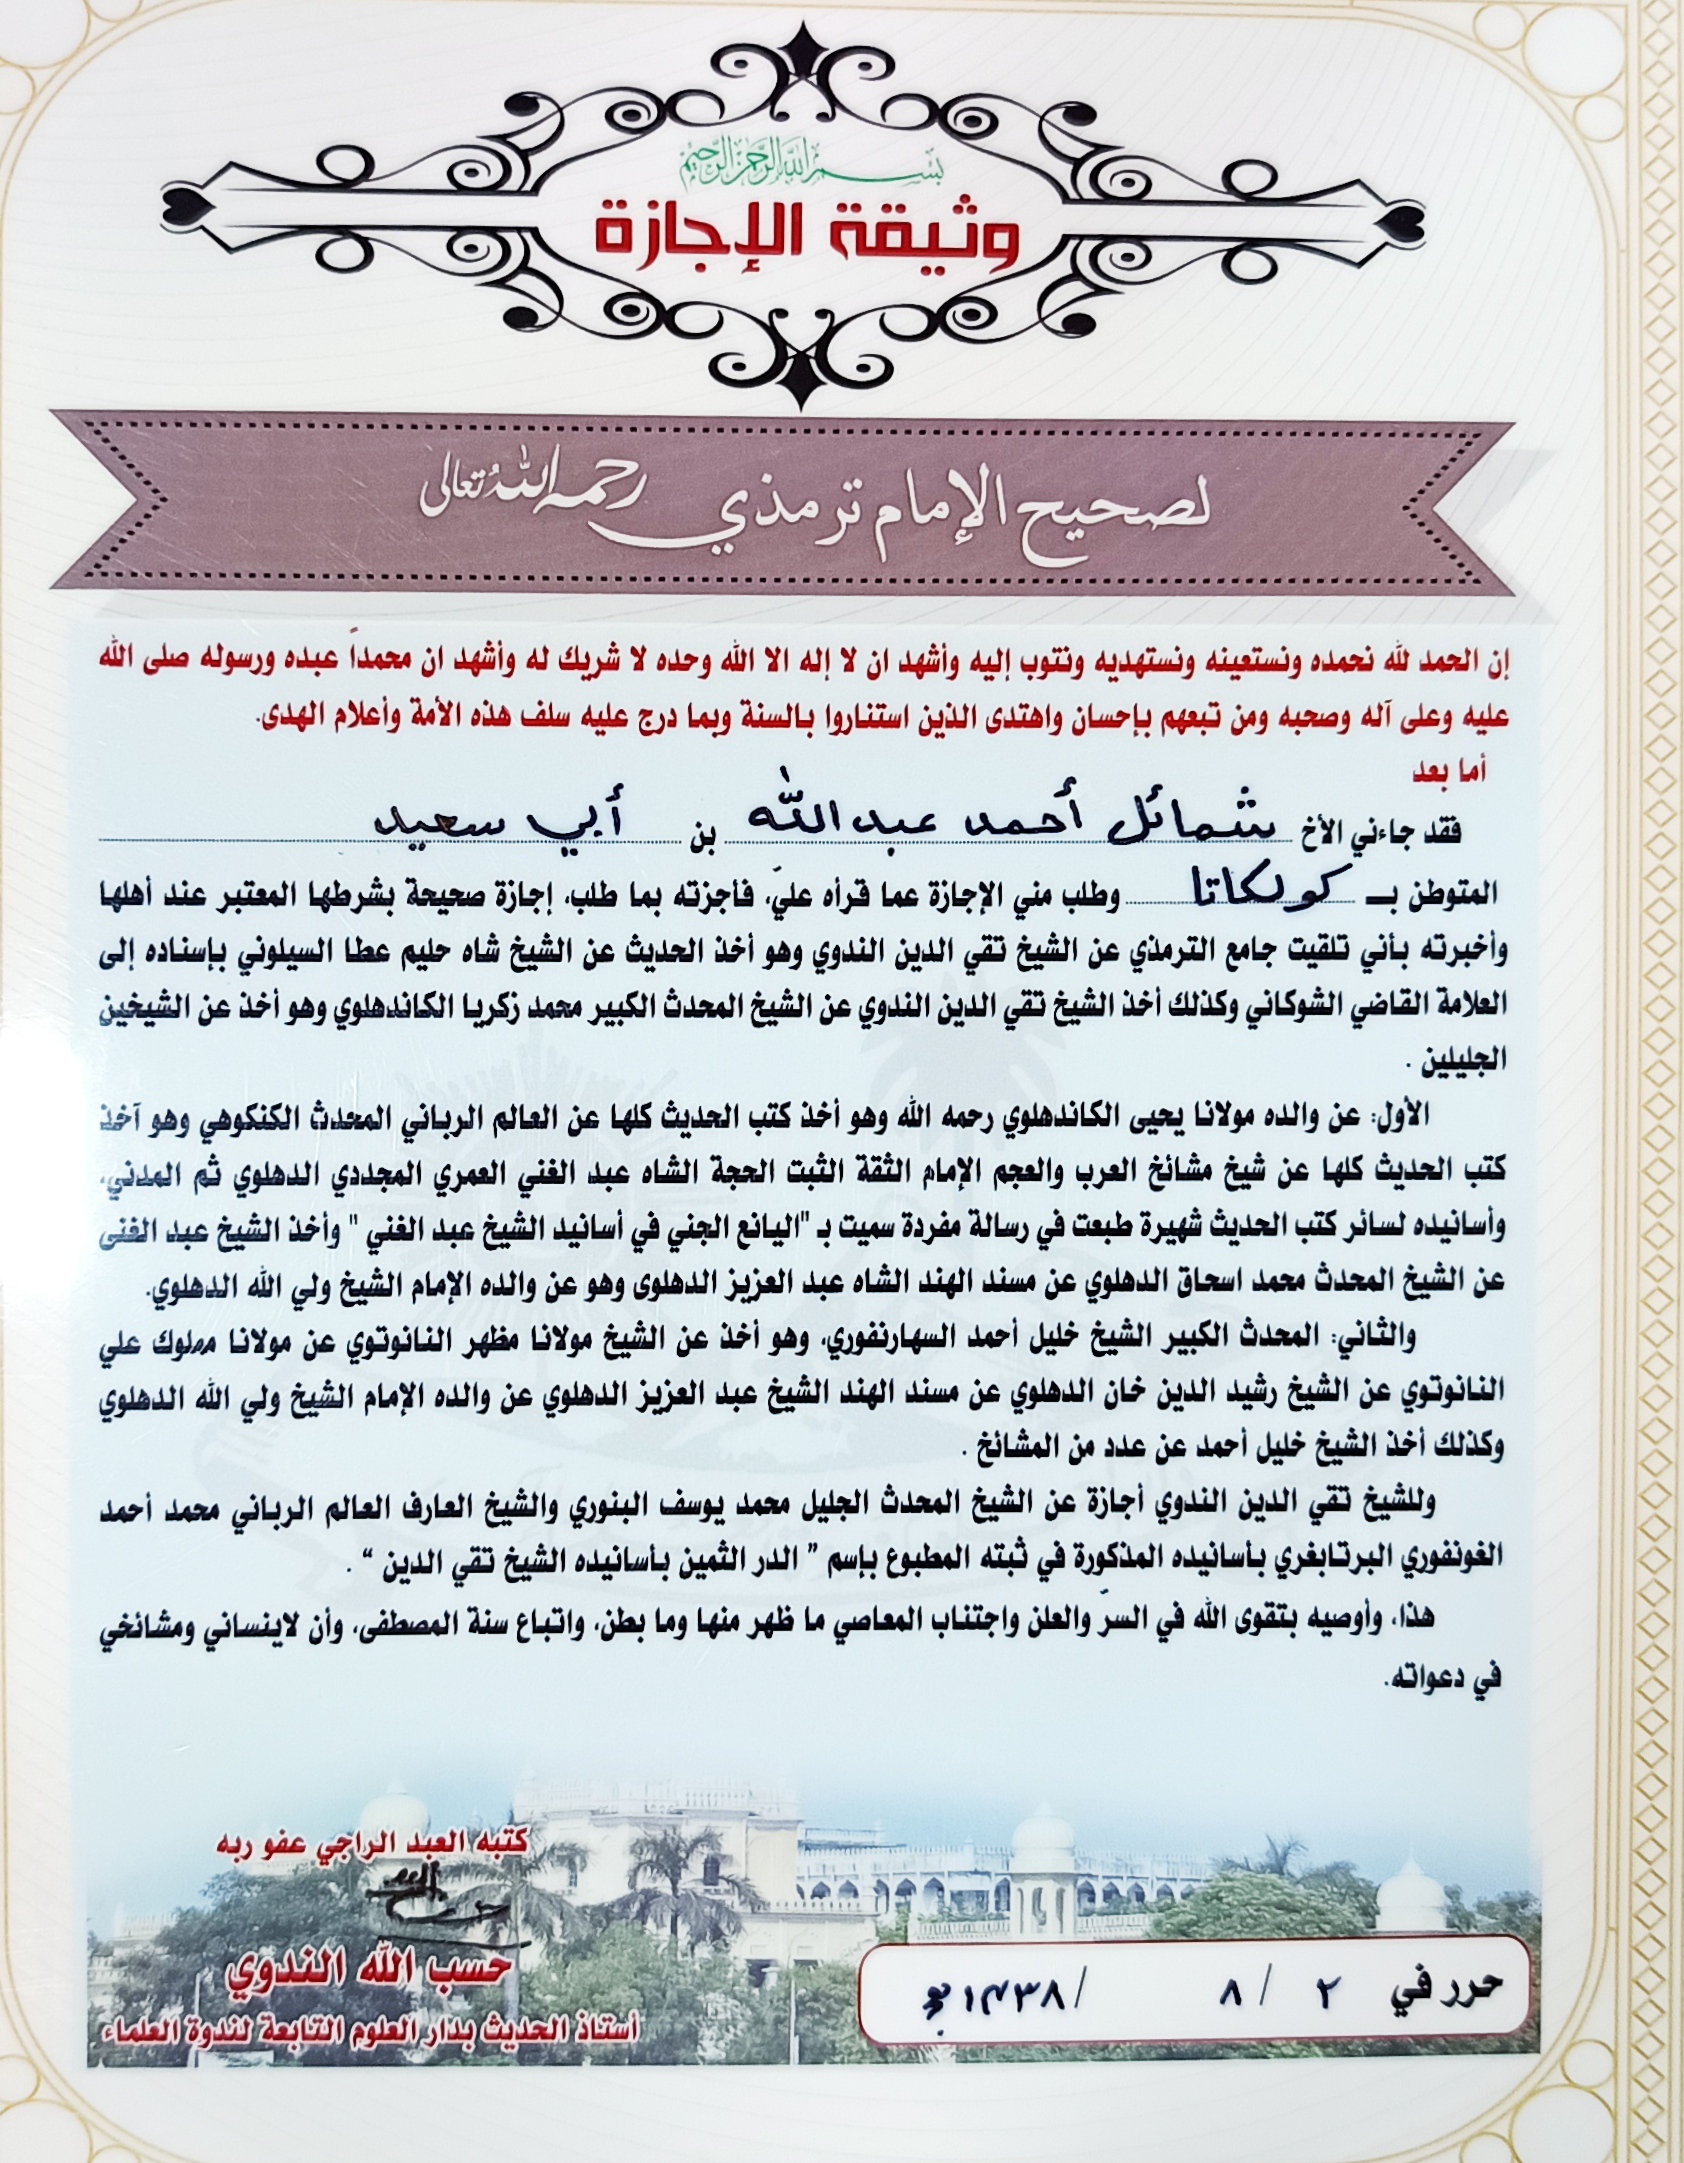 بسم الله الرحمن الرحيم
وثيقة الإجازة
لصحيح الإمام ترمذي رحمه الله تعالى
إن الحمد لله نحمده ونستعينه ونستهديه ونتوب إليه وأشهد ان لا إله الا الله وحده لا شريك له وأشهد ان محمداً عبده ورسوله صلى الله
عليه وعلى آله وصحبه ومن تبعهم بإحسان واهتدى الذين استناروا بالسنة وبما درج عليه سلف هذه الأمة وأعلام الهدى.
أما بعد
فقد جاءني الأخ شمائل أحمد عبد الله بن أبي سعيد
المتوطن بـ كولكاتا وطلب مني الإجازة عما قرأه عليّ، فأجزته بما طلب، إجازة صحيحة بشرطها المعتبر عند أهلها
وأخبرته بأني تلقيت جامع الترمذي عن الشيخ تقي الدين الندوي وهو أخذ الحديث عن الشيخ شاه حليم عطا السيلوني بإسناده إلى
العلامة القاضي الشوكاني وكذلك أخذ الشيخ تقي الدين الندوي عن الشيخ المحدث الكبير محمد زكريا الكاندهلوي وهو أخذ عن الشيخين
الجليلين .
الأول: عن والده مولانا يحيى الكاندهلوي رحمه الله وهو أخذ كتب الحديث كلها عن العالم الرباني المحدث الكنكوهي وهو آخذ
كتب الحديث كلها عن شيخ مشائخ العرب والعجم الإمام الثقة الثبت الحجة الشاه عبد الغني العمري المجددي الدهلوي ثم المدني،
وأسانيده لسائر كتب الحديث شهيرة طبعت في رسالة مفردة سميت بـ "اليانع الجني في أسانيد الشيخ عبد الغني " وأخذ الشيخ عبد الغنى
عن الشيخ المحدث محمد اسحاق الدهلوي عن مسند الهند الشاه عبد العزيز الدهلوى وهو عن والده الإمام الشيخ ولي الله الدهلوي.
والثاني: المحدث الكبير الشيخ خليل أحمد السهارنفوري، وهو أخذ عن الشيخ مولانا مظهر النانوتوي عن مولانا مملوك علي
النانوتوي عن الشيخ رشيد الدين خان الدهلوي عن مسند الهند الشيخ عبد العزيز الدهلوي عن والده الإمام الشيخ ولي الله الدهلوي
وكذلك أخذ الشيخ خليل أحمد عن عدد من المشائخ .
وللشيخ تقي الدين الندوي أجازة عن الشيخ المحدث الجليل محمد يوسف البنوري والشيخ العارف العالم الرباني محمد أحمد
الغونفوري البرتابغري بأسانيده المذكورة في ثبته المطبوع بإسم " الدر الثمين بأسانيده الشيخ تقي الدين " .
هذا، وأوصيه بتقوى الله في السرّ والعلن واجتناب المعاصي ما ظهر منها وما بطن، واتباع سنة المصطفى، وأن لاينساني ومشائخي
في دعواته.
كتبه العبد الراجي عفو ربه
حسب الله الندوي
أستاذ الحديث بدار العلوم التابعة لندوة العلماء
حرر في ٢ / ٨ / ١٤٣٨ھ